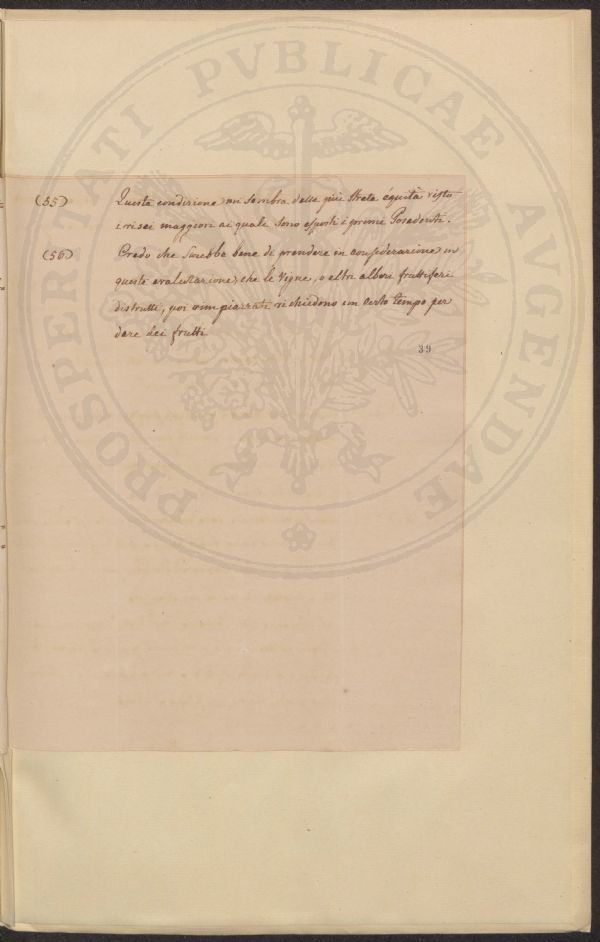 PROSPERITATI PVBLICAE AVGENDAE
(55) Questa condizione mi sembra della più streta équità visto
i risci maggiori ai quale sono esposti i primi
(56) Credo che sarebbe bene di prendere in considerazione in
queste evalutazione, che le vigne, o altri alberi fruttiferi
distrutti, poi rimpiazzati richiedono un certo tempo per
dare dei frutti
39